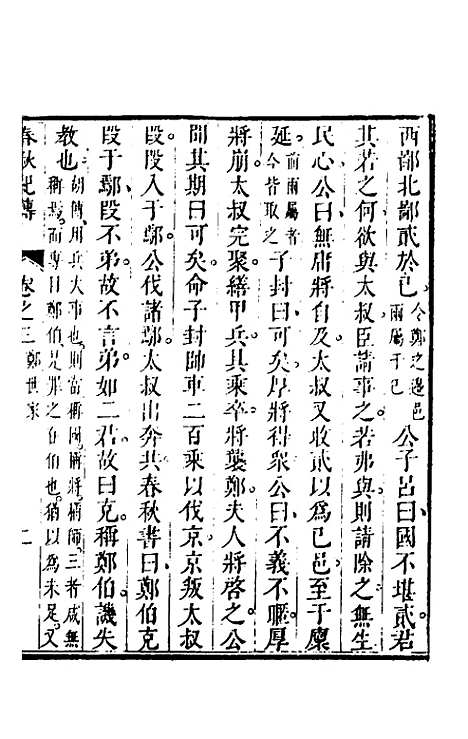 西鄙北鄙貳於已令鄭之邊邑兩屬于已公子呂曰國不堪貳君
其若之何欲與太叔臣請事之若弗與則請除之無生
民心公曰無庸將自及太叔又收貳以為已邑至于廩
延前兩屬者今皆取之子封曰可矣厚將得衆公曰不義不暱厚
將崩太叔完聚繕甲兵具乘卒將襲鄭夫人將啓之公
聞其期曰可矣命子封帥車二百乘以伐京京叛太叔
段段入于鄢公伐諸鄢太叔出奔共春秋書曰鄭伯克
段于鄢段不弟故不言弟如二君故曰克稱鄭伯譏失
教也胡傳用兵大事也則當稱國將稱師三者咸無稱焉而專目鄭伯是罪之在伯也猶以為未足又
春秋紀傳 卷之三 鄭世家